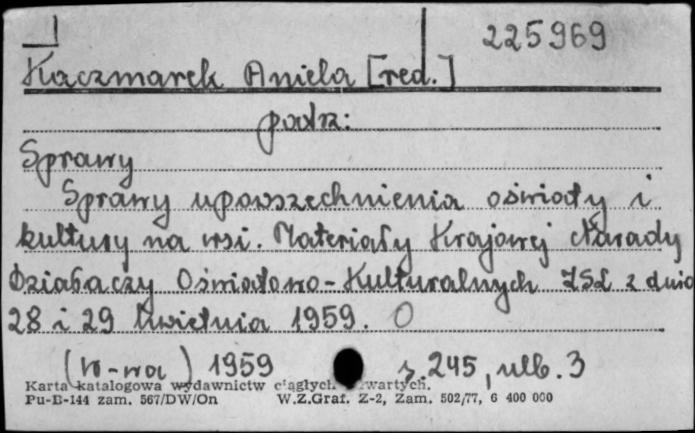 225969
Kaczmarek Aniela [red.]
patrz:
Sprawy
Sprawy upowszechnienia oświaty i
kultury na wsi. Materiały Krajowej Narady
Działaczy Oświatowo-Kulturalnych ZSL z dnia
28 i 29 kwietnia 1959. O
(W-wa) 1959 s. 245, nlb. 3
Karta katalogowa wydawnictw ciągłych zwartych.
Pu-B-144 zam. 567/DW/On W.Z.Graf. Z-2, Zam. 502/77, 6 400 000